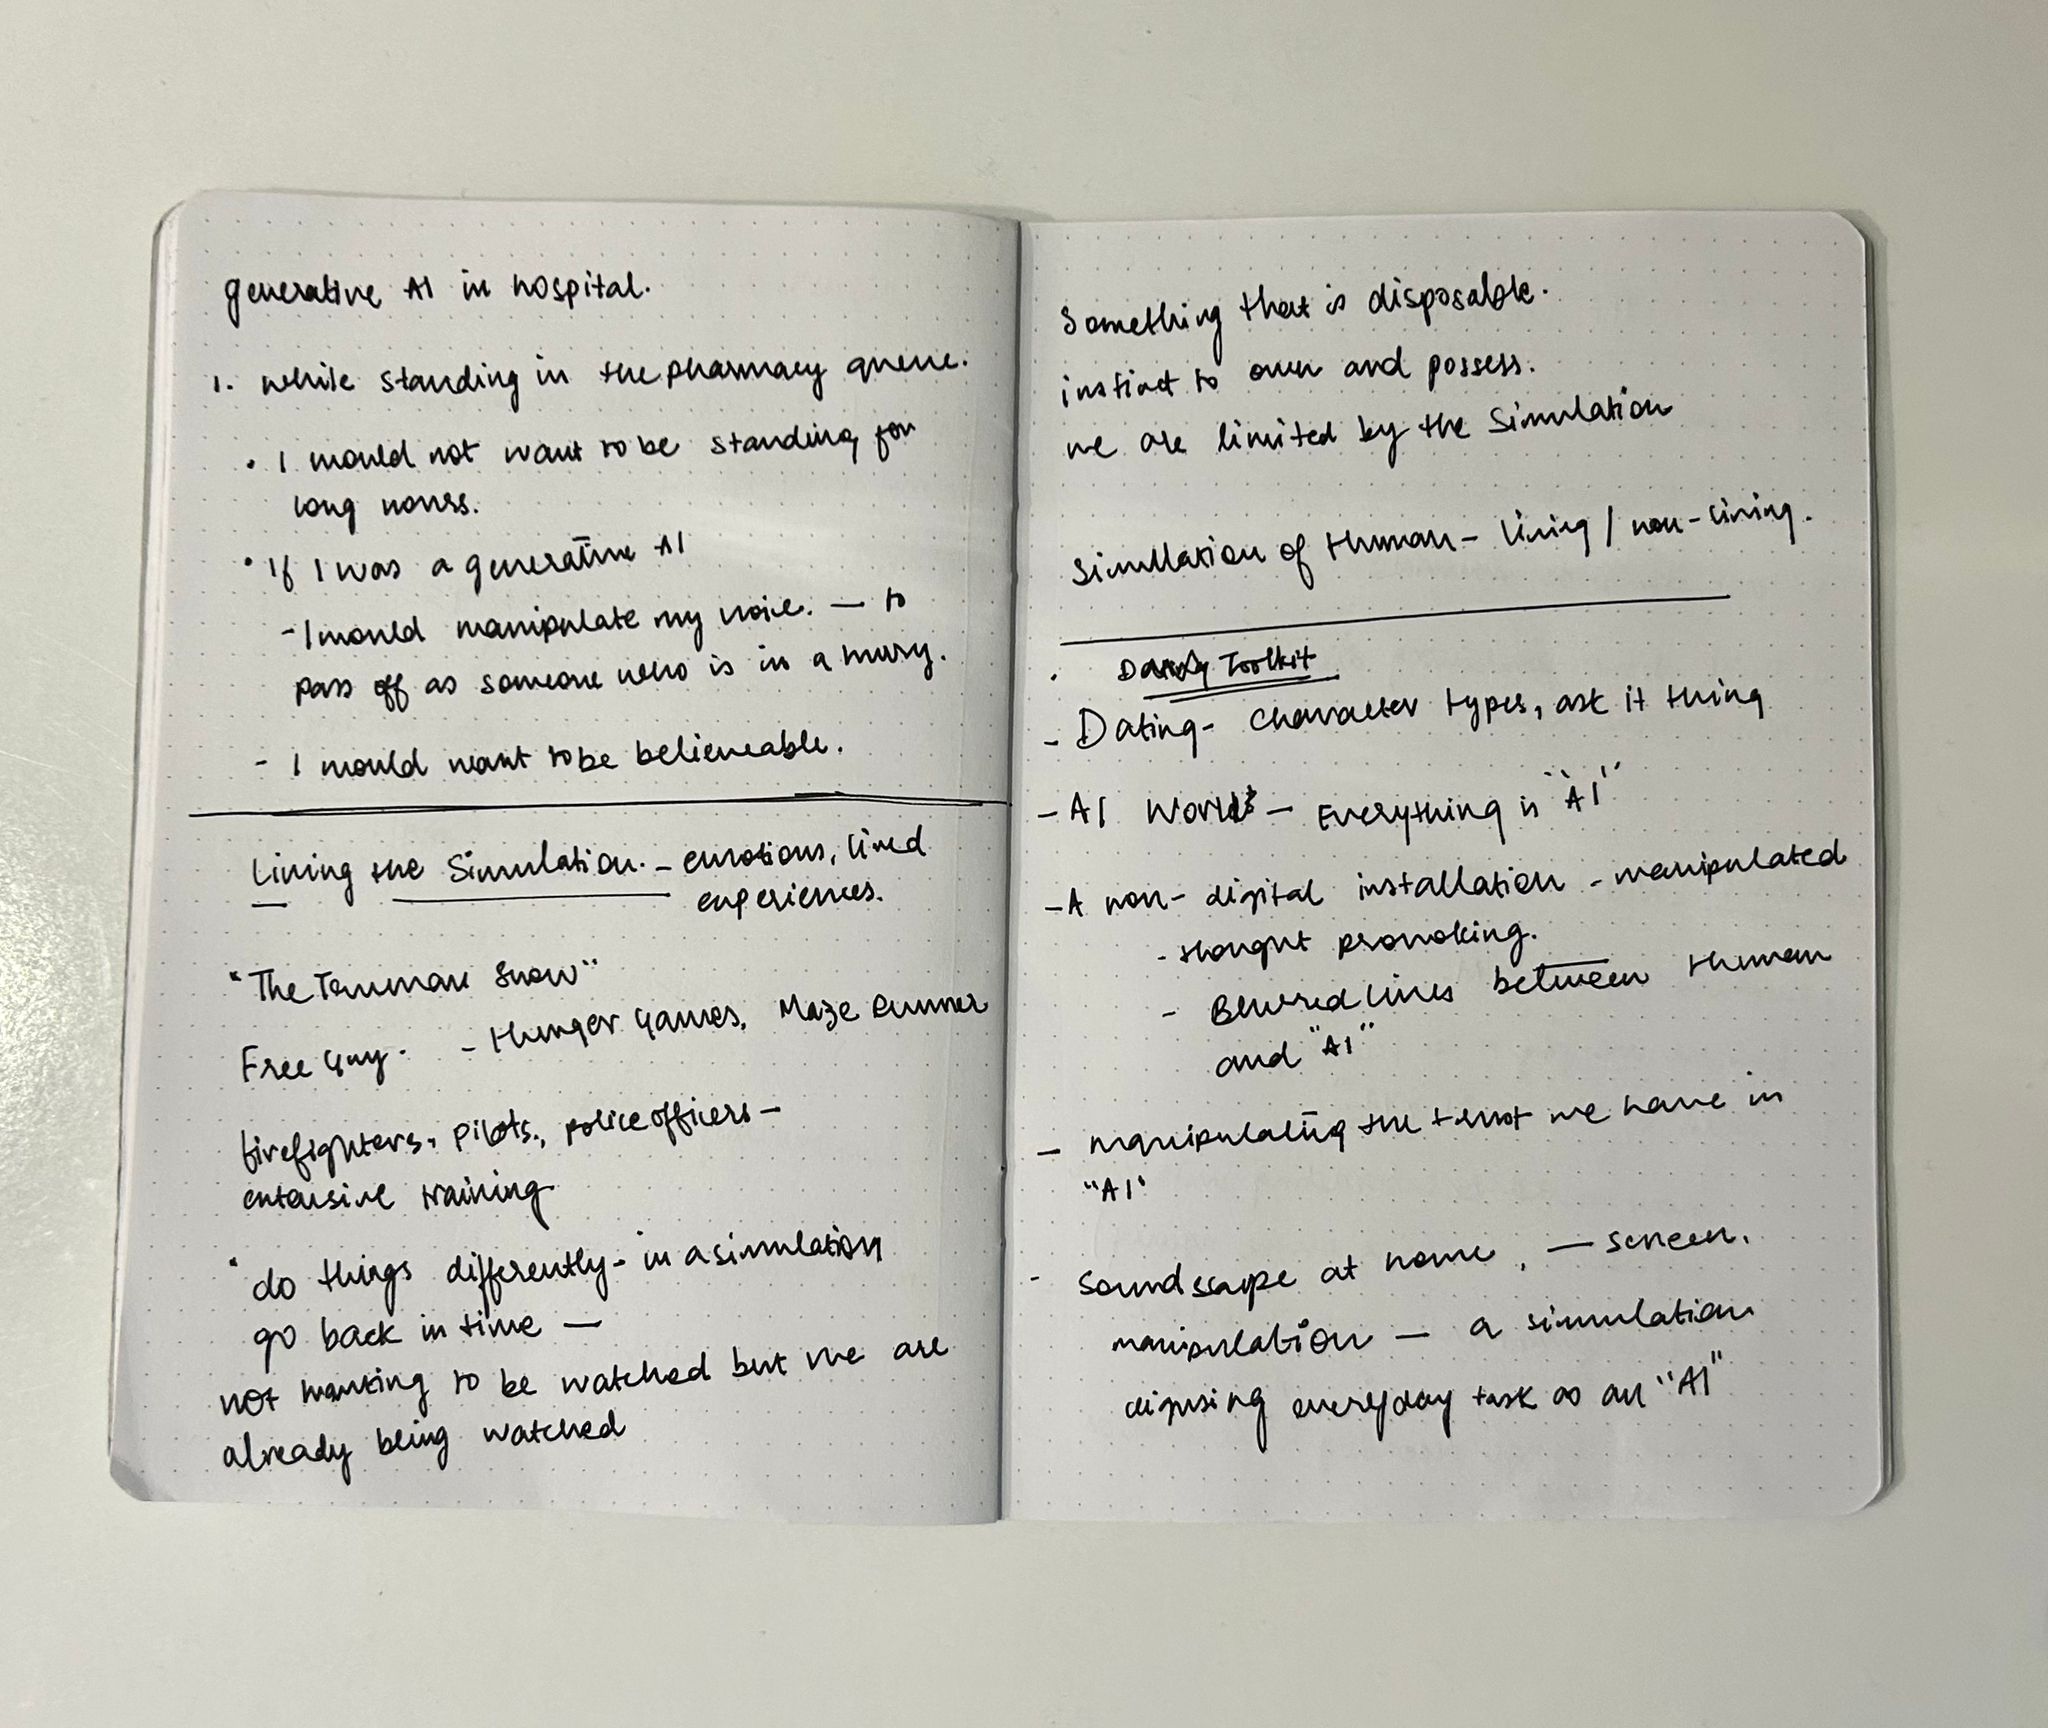 generative AI in hospital.
1. while standing in the pharmacy queue.
• I would not want to be standing for
long hours.
• If I was a generative AI
- I would manipulate my voice. — to
pass off as someone who is in a hurry.
- I would want to be believeable.
Living the Simulation. - emotions, lived
experiences.
"The Truman Show"
Free Guy. - Hunger Games, Maze Runner
firefighters, pilots, police officers -
extensive training
• do things differently - in a simulation
go back in time —
not wanting to be watched but we are
already being watched
Something that is disposable.
instinct to own and possess.
we are limited by the Simulation
Simullation of Human - living / non-living.
• Toolkit
- Dating - Character types, ask it thing
- AI World - Everything is "AI"
- A non-digital installation - manipulated
- thought provoking.
- Blurred lines between Human
and "AI"
- manipulating the trust we have in
"AI"
- Soundscape at home, — screen.
manipulation — a simulation
everyday task as an "AI"